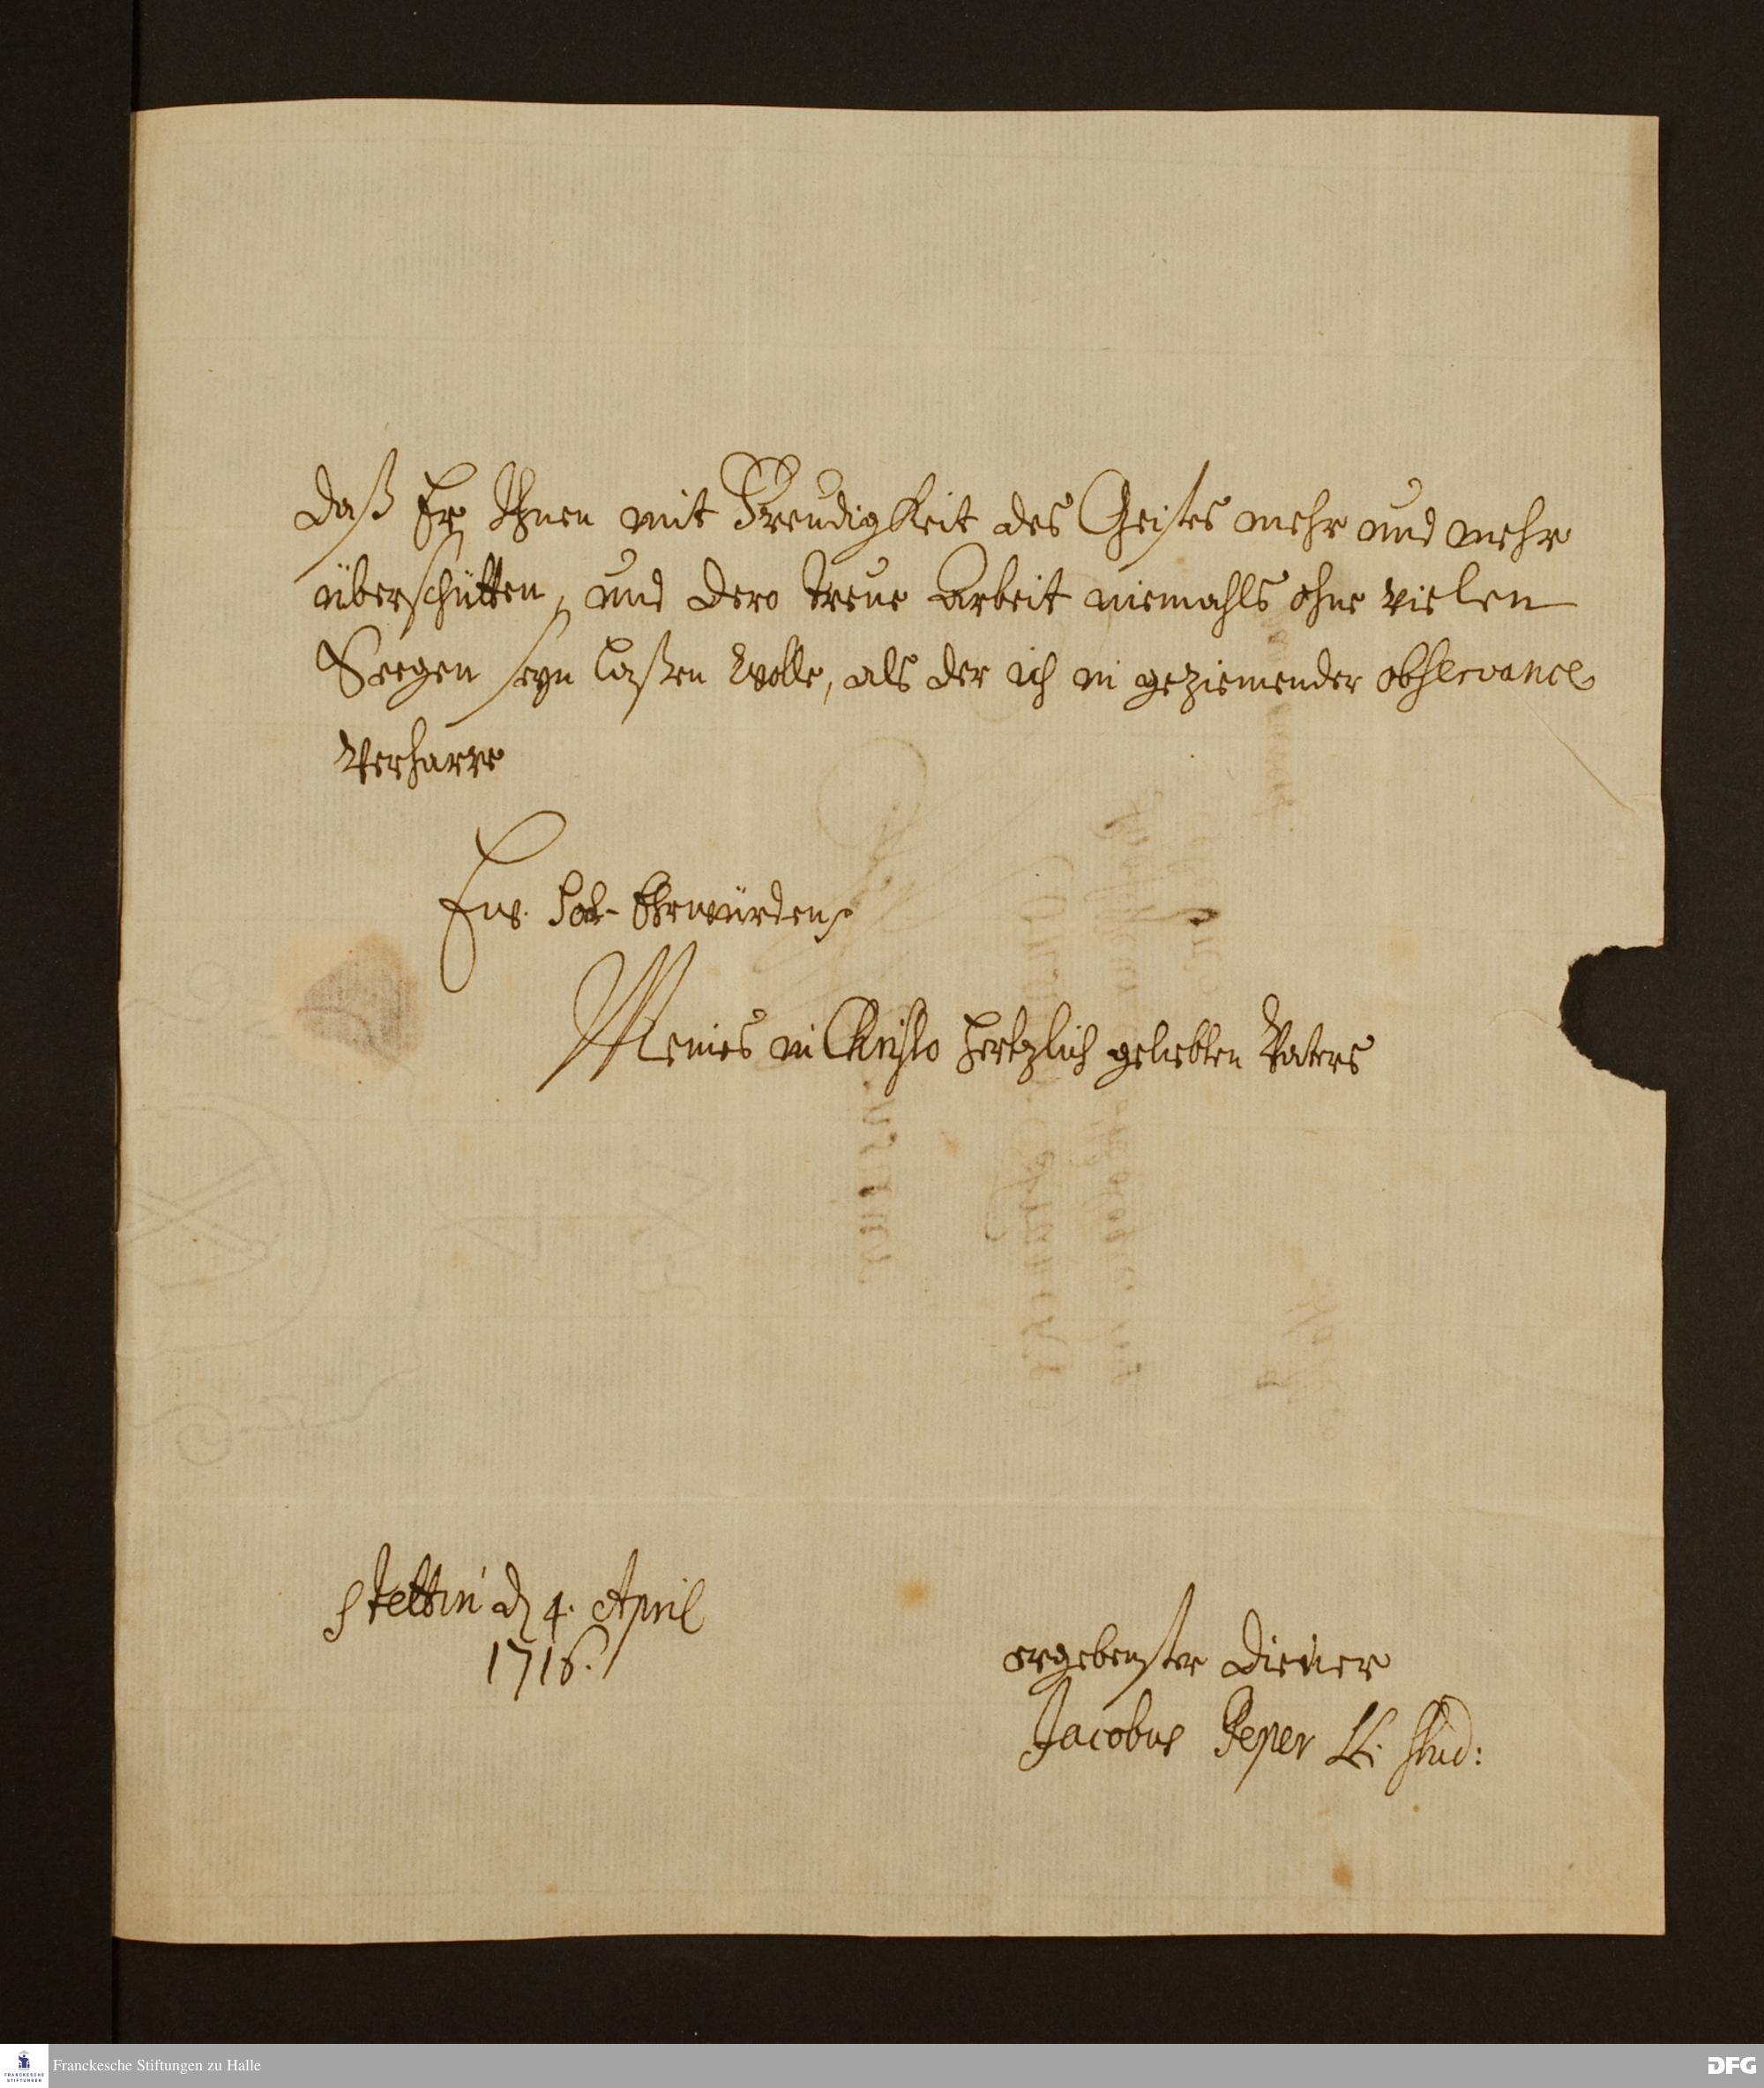 daß Er Ihnen mit Freudigkeit des Geistes mehr und mehr
überschütten, und dero treue Arbeit niemahls ohne vielen
Seegen seyn laßen wolle, als der ich in geziemender observance
verharre
Ew. Hoch-Ehrwürden
Meines in Christo hertzlich geliebten Vaters
Stettin d 4. April
1716.
ergebenster Diener
Jacobus Peper stud:
Franckesche Stiftungen zu Halle
FRANCKESCHE
STIFTUNGEN
DFG